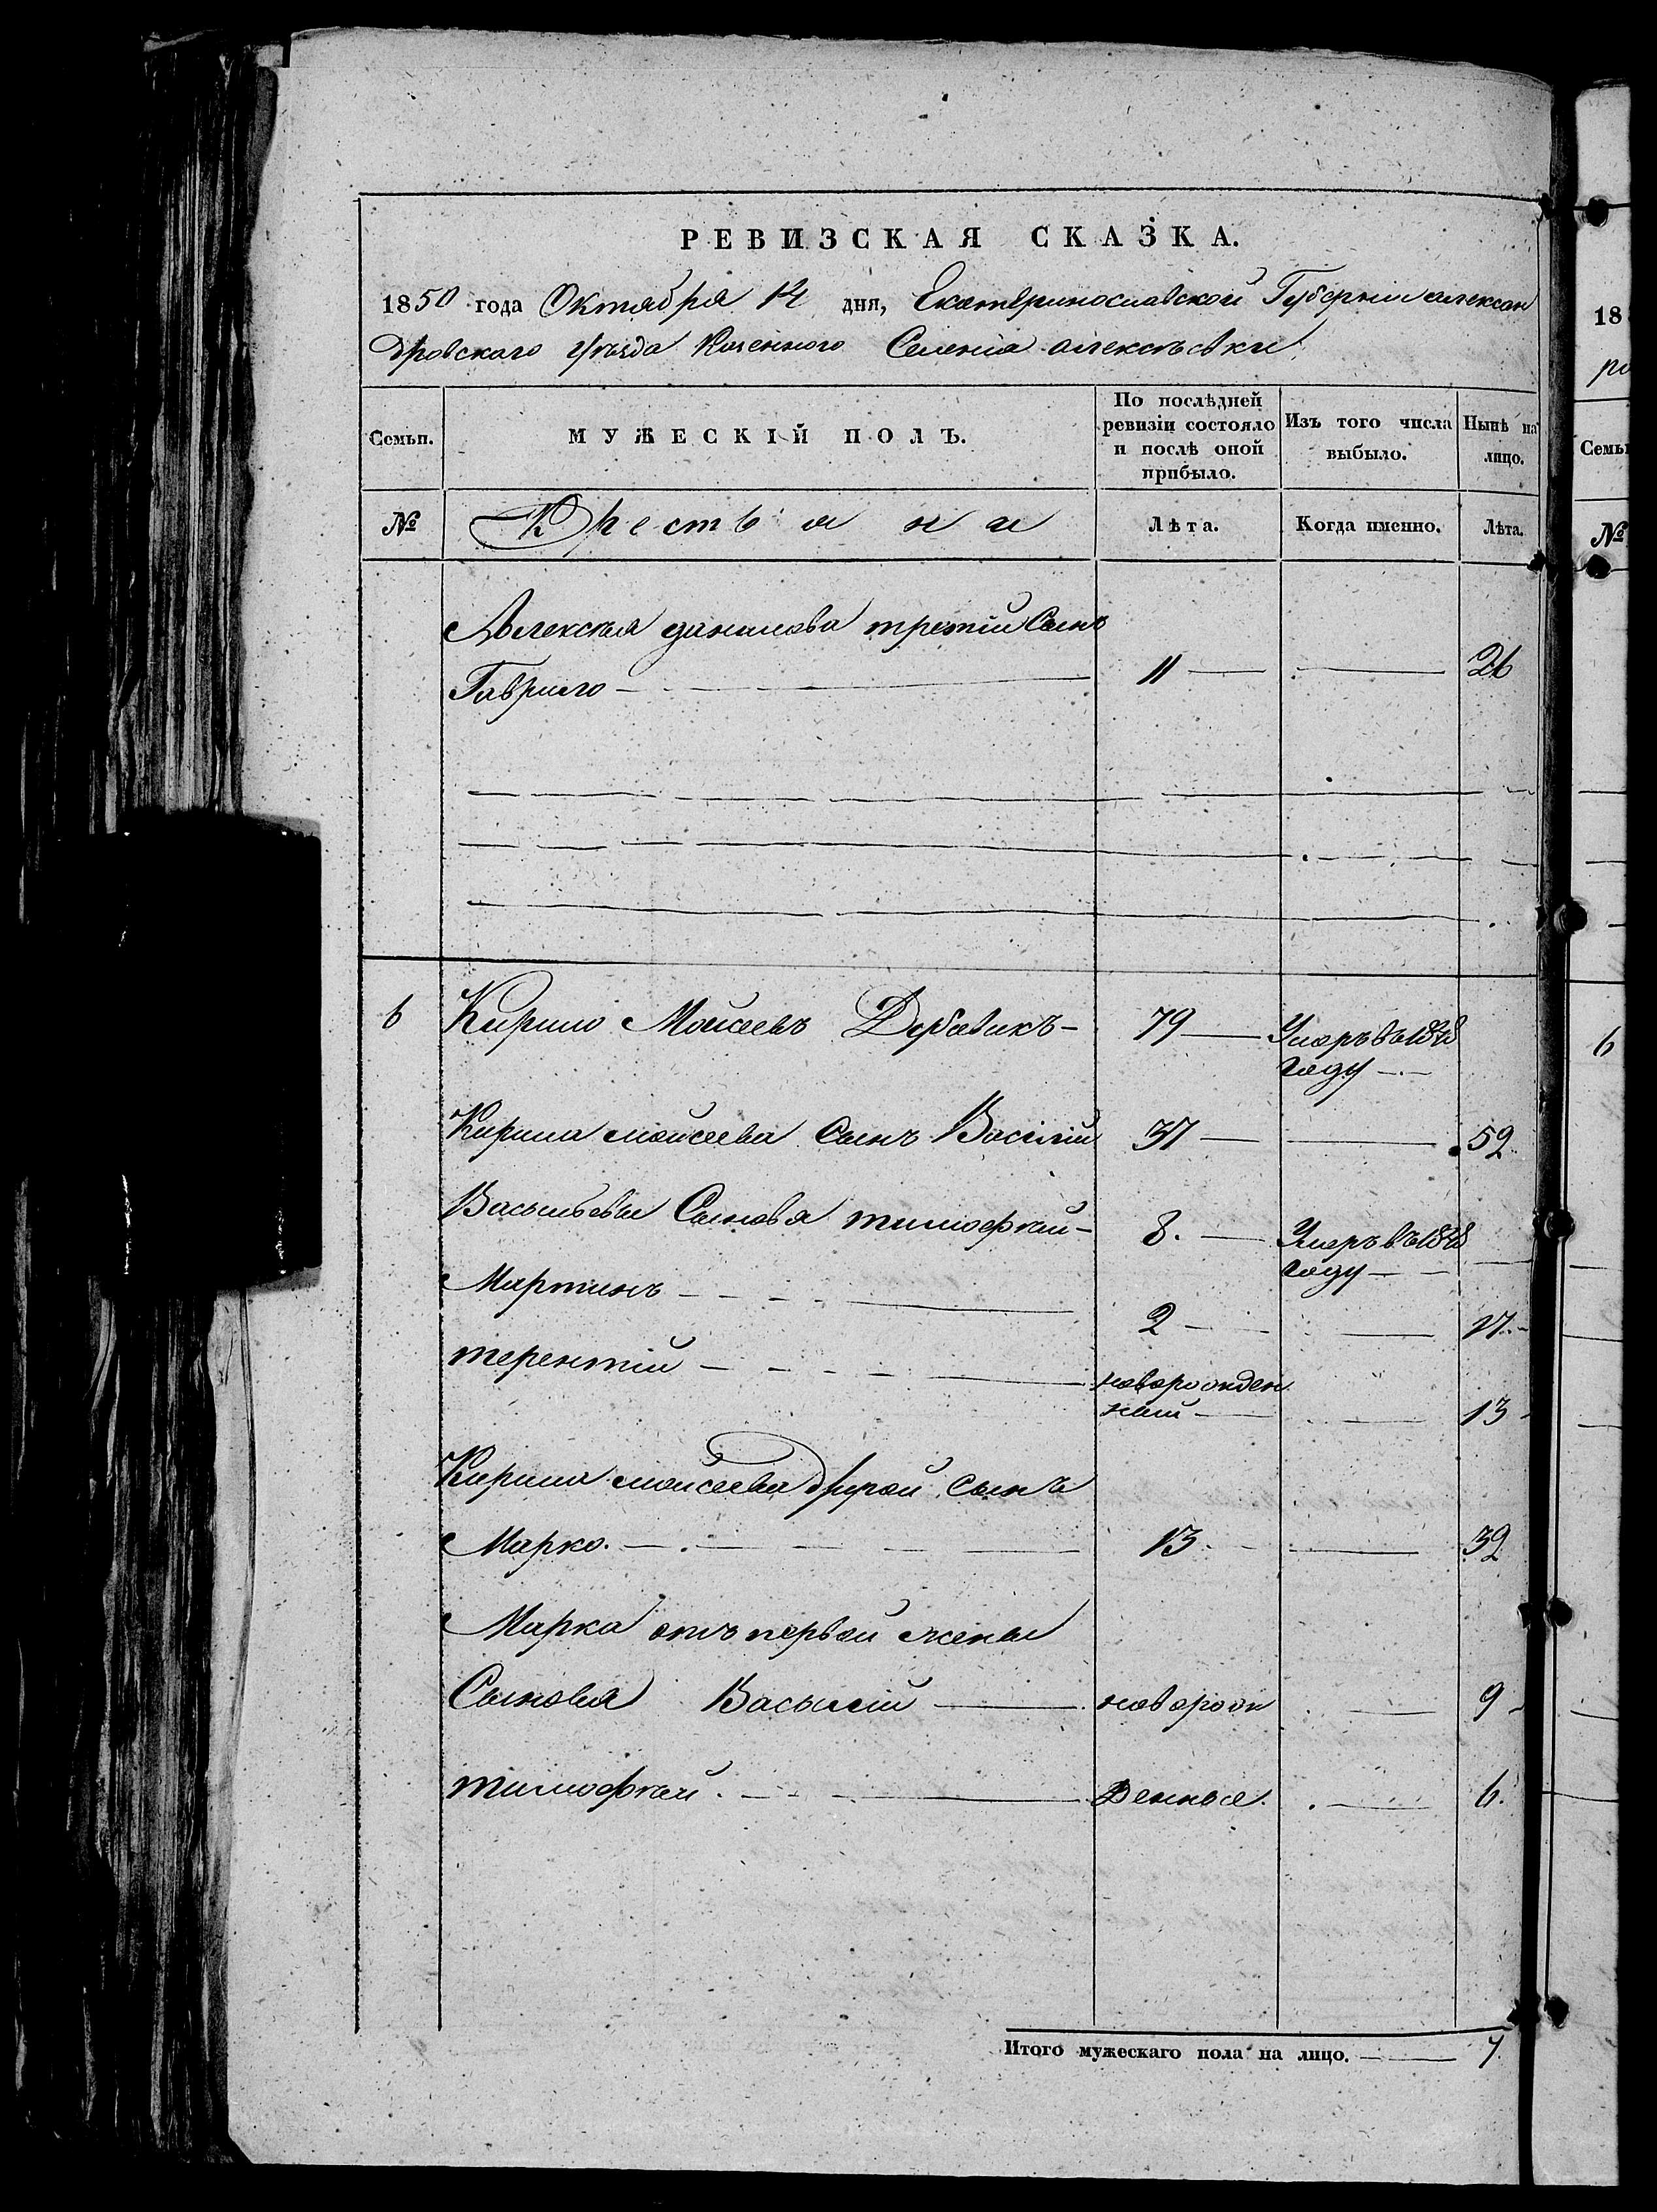 РЕВИЗСКАЯ СКАЗКА.
1850 года Октября 14 дня, Екатеринославской Губерніи алексан
дровскаго уѣзда Казенного Селенія алексѣевки
Семьи. МУЖЕСКІЙ ПОЛЪ. По послѣдней ревизіи состояло и послѣ оной прибыло. Изъ того числа выбыло. Нынѣ на лицо.
№ Крестьяни Лѣта. Когда именно. Лѣта.
Алексѣя данилова третій Сынъ
Гаврило 11 26
6 Кирило Моисеевъ 79 Умеръ въ 1848
году
Кирила моисеева Сынъ Василій 37 52
Васильевы Сыновья тимофѣй 8. Умеръ въ 1848
году
Мартинъ 2 17
терентій новорожден
ный 13
Кирила моисеева другой сынъ
Марко. 13 32
Марка отъ первой жены
Сыновья Василій новорож 9
тимофѣй. денные. 6.
Итого мужескаго пола на лицо. 7
18
№
6